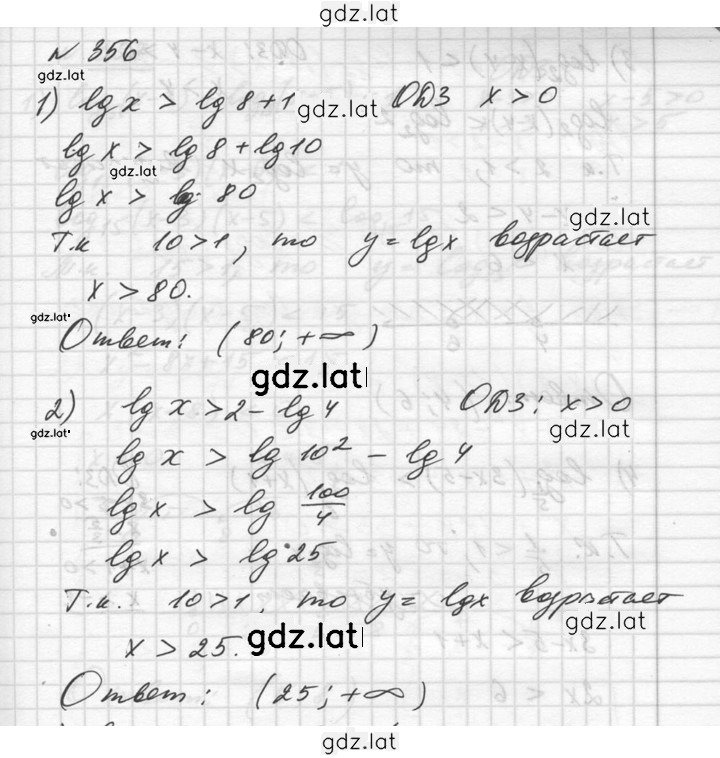 gdz.lat
№ 356
gdz.lat
1) lg x > lg 8 + 1 gdz.lat ОДЗ x > 0
lg x > lg 8 + lg 10
gdz.lat
lg x > lg 80
gdz.lat
Т.к 10 > 1, то y = lg x возрастает
x > 80.
gdz.lat
Ответ: (80; +∞)
gdz.lat
2) lg x > 2 - lg 4 ОДЗ: x > 0
gdz.lat gdz.lat
lg x > lg 10² - lg 4
lg x > lg 100/4
lg x > lg 25
Т.к. 10 > 1, то y = lg x возрастает
gdz.lat
x > 25. gdz.lat
Ответ: (25; +∞)
gdz.lat